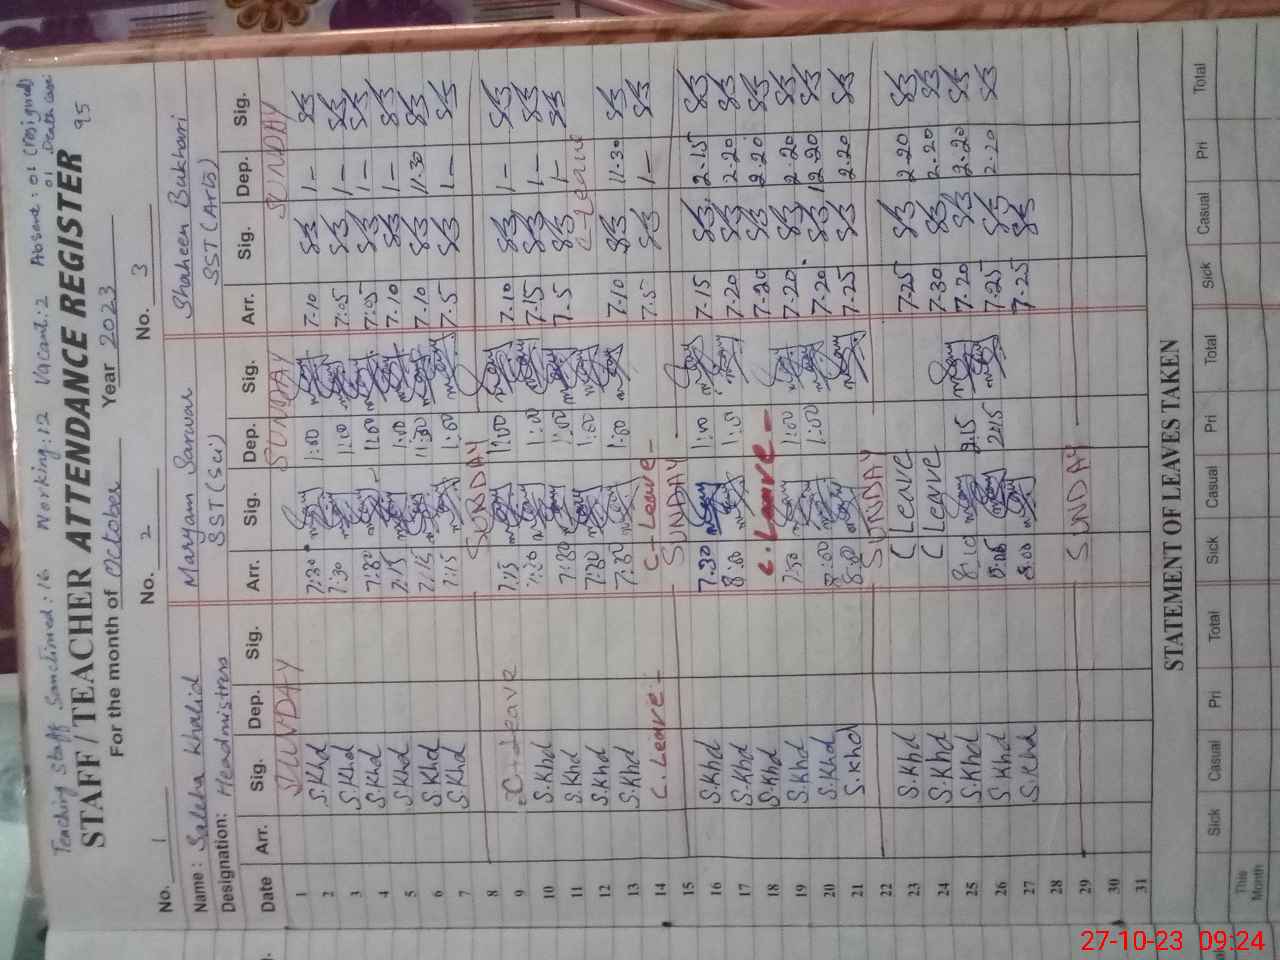 Teaching Staff Sanctioned: 16 Working: 12 Vacant: 2 Absence: 01 (resigned)
01 Death case
STAFF / TEACHER ATTENDANCE REGISTER 95
For the month of October Year 2023
No. 1 No. 2 No. 3
Name: Saleha Khalid Maryam Sarwar Shaheen Bukhari
Designation: Headmistress SST (Sci) SST (Arts)
Date Arr. Sig. Dep. Sig. Arr. Sig. Dep. Sig. Arr. Sig. Dep. Sig.
1 SUNDAY SUNDAY SUNDAY
2 S.Khd 7:30 1:00 7.10 1-
3 S.Khd 7:30 1:00 7.05 1-
4 S.Khd 7:20 1:00 7.05 1-
5 S.Khd 7:15 1:00 7.10 1-
6 S.Khd 7:15 11:30 7.10 11.30
7 S.Khd 7:15 1:00 7.5 1-
8 SUNDAY
9 C-Leave 7:15 1:00 7.10 1-
10 S.Khd 7:20 1:00 7.15 1-
11 S.Khd 7:20 1:00 7.5 1-
12 S.Khd 7:20 1:00 C-Leave
13 S.Khd 7:30 1:00 7.10 11.30
14 C.Leave- C-Leave- 7.5 1-
15 SUNDAY
16 S.Khd 7:30 1:00 7.15 2.15
17 S.Khd 8:00 1:00 7.20 2.20
18 S.Khd C.Leave- 7.20 2.20
19 S.Khd 7:50 1:00 7.20 2.20
20 S.Khd 8:00 1:00 7.20 2.20
21 S.Khd 8:00 7.25 2.20
22 SUNDAY
23 S.Khd C Leave 7.25 2.20
24 S.Khd C Leave 7.30 2.20
25 S.Khd 8:10 2:15 7.20 2.20
26 S.Khd 8:05 2:15 7.25 2.20
27 S.Khd 8:00 7.25
28
29 SUNDAY
30
31
STATEMENT OF LEAVES TAKEN
Sick Casual Pri Total Sick Casual Pri Total Sick Casual Pri Total
This Month
27-10-23 09:24